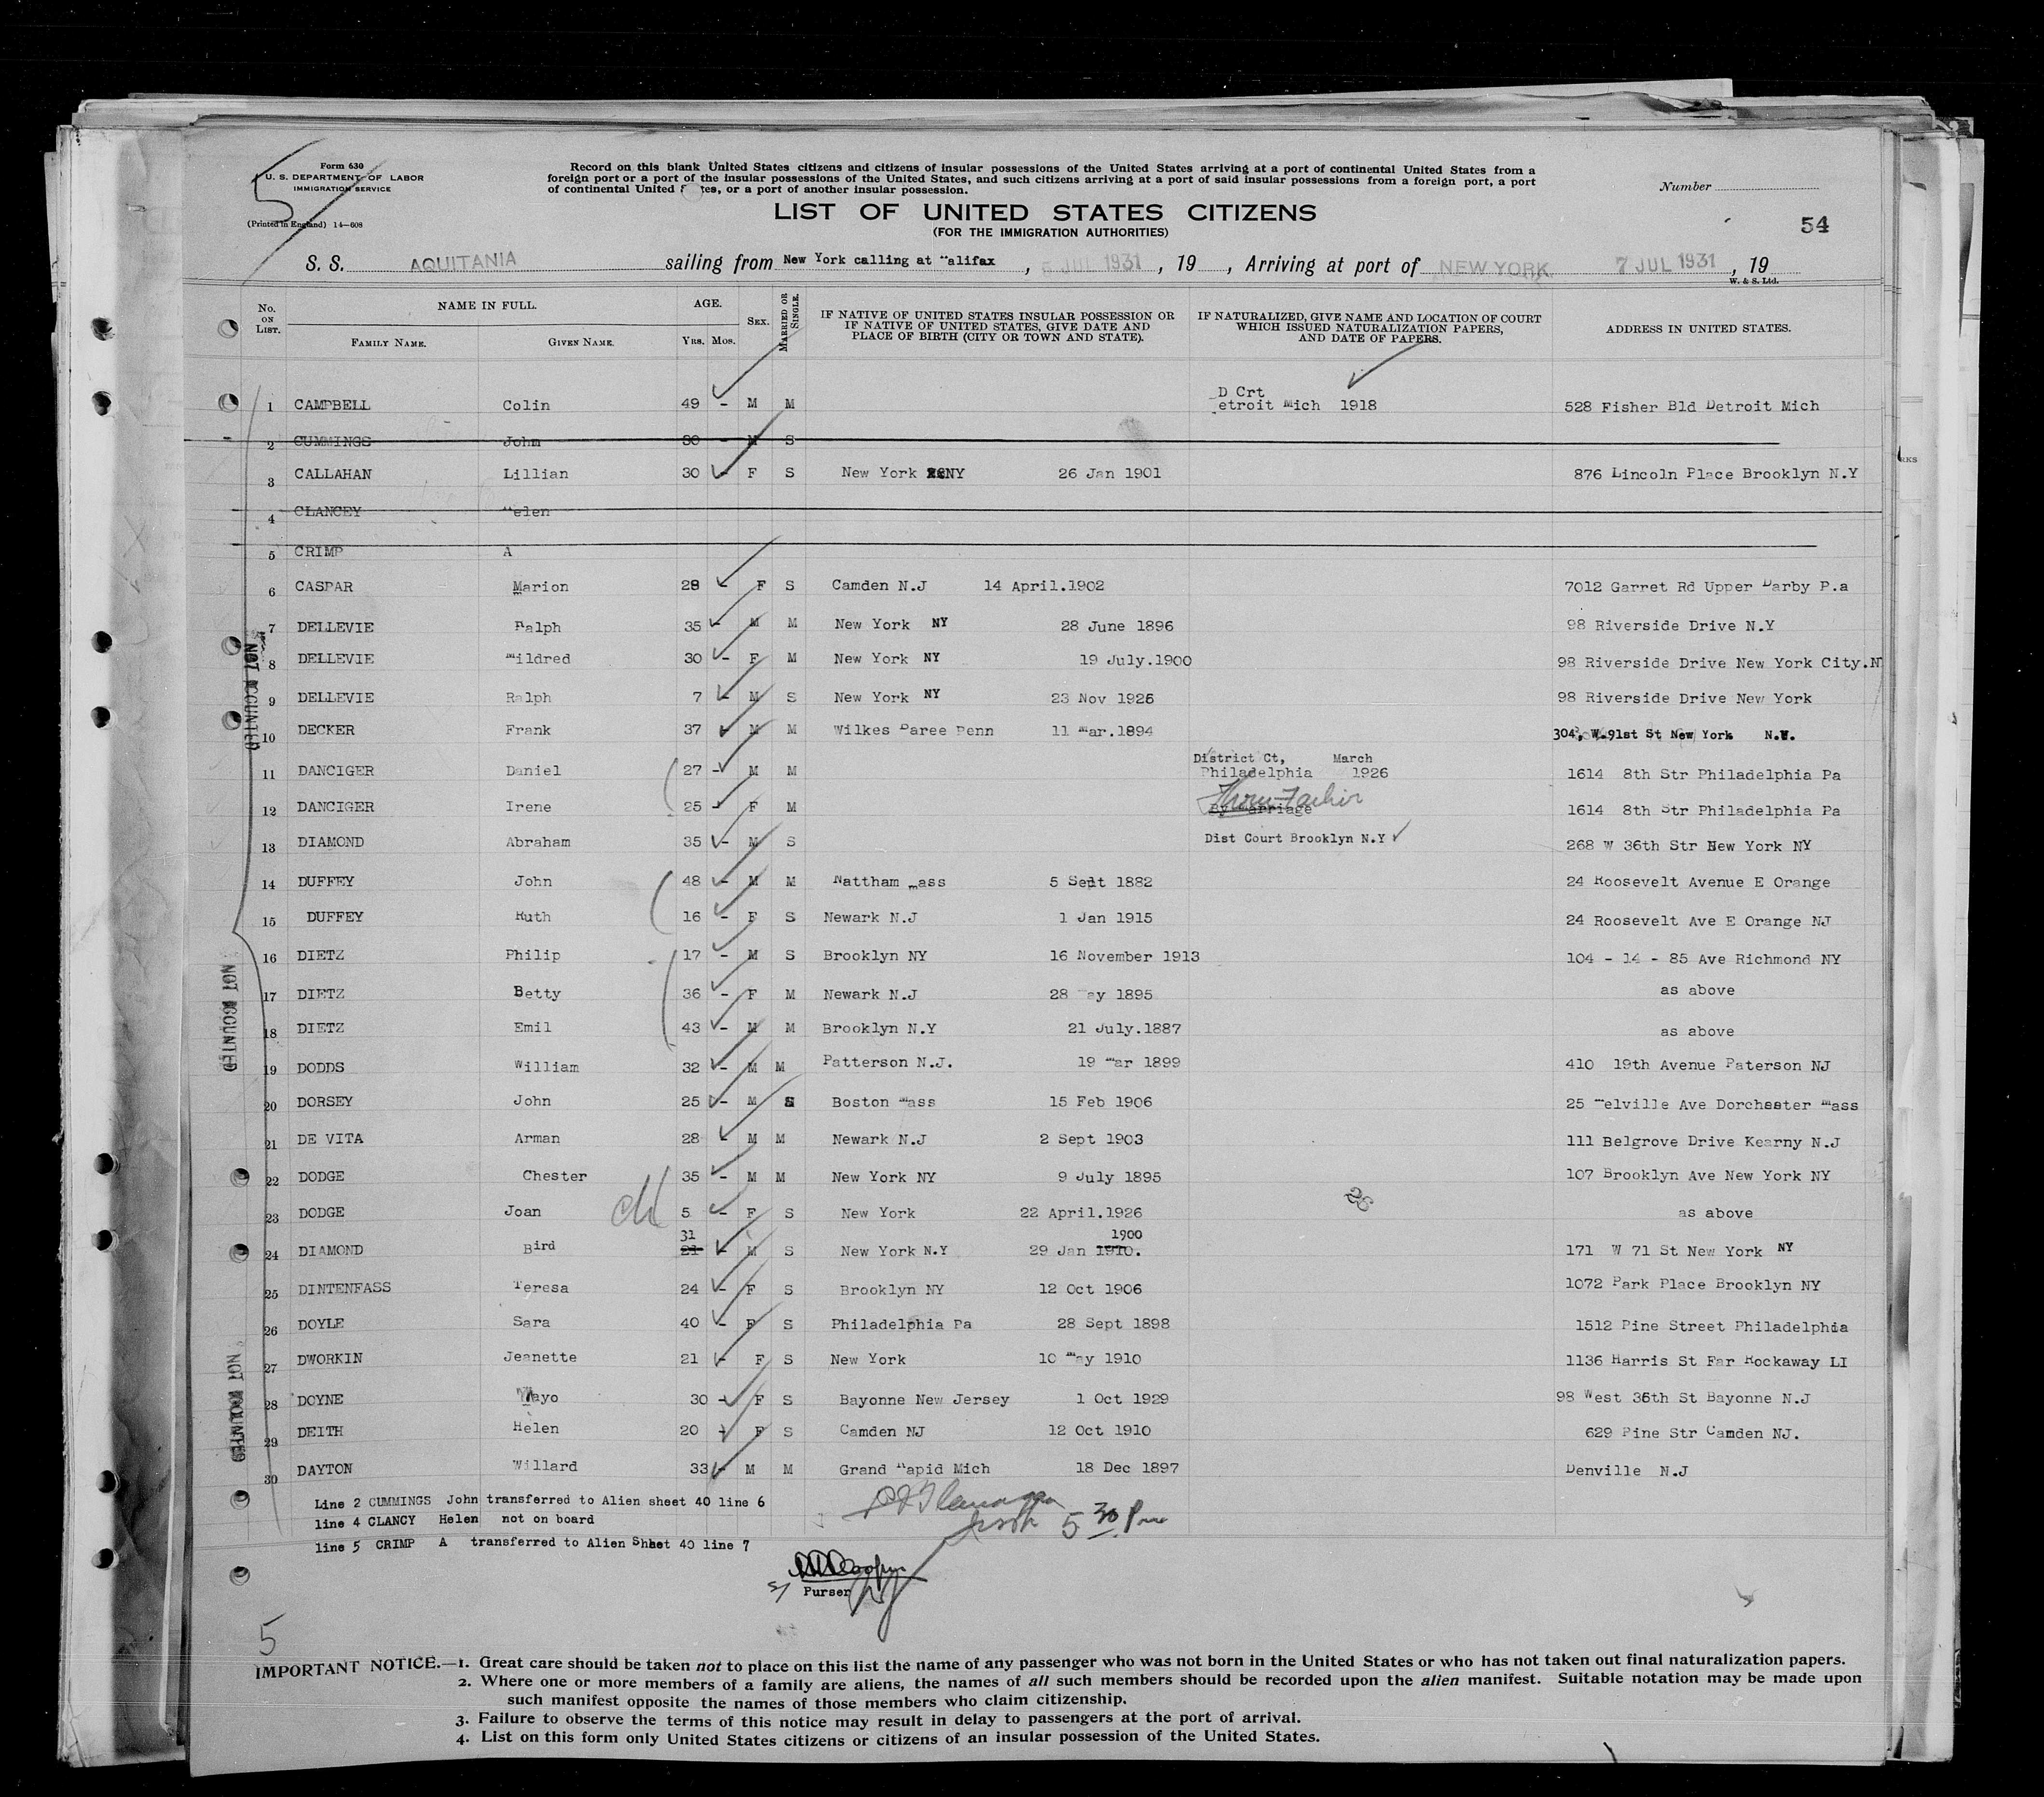 Form 630
U. S. DEPARTMENT OF LABOR
IMMIGRATION SERVICE
(Printed in England) 14—608
5
Record on this blank United States citizens and citizens of insular possessions of the United States arriving at a port of continental United States from a
foreign port or a port of the insular possessions of the United States, and such citizens arriving at a port of said insular possessions from a foreign port, a port
of continental United States, or a port of another insular possession.
Number
LIST OF UNITED STATES CITIZENS
(FOR THE IMMIGRATION AUTHORITIES)
54
S. S. AQUITANIA sailing from New York calling at Halifax, JUL 1931, 19 , Arriving at port of NEW YORK 7 JUL 1931, 19
W. & S. Ltd.
No. ON LIST. NAME IN FULL. FAMILY NAME. GIVEN NAME. AGE. YRS. MOS. SEX. MARRIED OR SINGLE. IF NATIVE OF UNITED STATES INSULAR POSSESSION OR IF NATIVE OF UNITED STATES, GIVE DATE AND PLACE OF BIRTH (CITY OR TOWN AND STATE). IF NATURALIZED, GIVE NAME AND LOCATION OF COURT WHICH ISSUED NATURALIZATION PAPERS, AND DATE OF PAPERS. ADDRESS IN UNITED STATES.
1 CAMPBELL Colin 49 - M M D Crt etroit Mich 1918 528 Fisher Bld Detroit Mich
2 CUMMINGS John 30 - M S
3 CALLAHAN Lillian 30 - F S New York NY 26 Jan 1901 876 Lincoln Place Brooklyn N.Y
4 CLANCEY Helen
5 CRIMP A
6 CASPAR Marion 28 - F S Camden N.J 14 April.1902 7012 Garret Rd Upper Darby P.a
7 DELLEVIE Ralph 35 - M M New York NY 28 June 1896 98 Riverside Drive N.Y
8 DELLEVIE Mildred 30 - F M New York NY 19 July.1900 98 Riverside Drive New York City.N
9 DELLEVIE Ralph 7 - M S New York NY 23 Nov 1926 98 Riverside Drive New York
10 DECKER Frank 37 - M M Wilkes Baree Penn 11 Mar.1894 304, W.91st St New York N.Y.
11 DANCIGER Daniel 27 - M M District Ct, March Philadelphia 1926 1614 8th Str Philadelphia Pa
12 DANCIGER Irene 25 - F M By Marriage Thru Father 1614 8th Str Philadelphia Pa
13 DIAMOND Abraham 35 - M S Dist Court Brooklyn N.Y 268 W 36th Str New York NY
14 DUFFEY John 48 - M M Nattham Mass 5 Sept 1882 24 Roosevelt Avenue E Orange
15 DUFFEY Ruth 16 - F S Newark N.J 1 Jan 1915 24 Roosevelt Ave E Orange NJ
16 DIETZ Philip 17 - M S Brooklyn NY 16 November 1913 104 - 14 - 85 Ave Richmond NY
17 DIETZ Betty 36 - F M Newark N.J 28 May 1895 as above
18 DIETZ Emil 43 - M M Brooklyn N.Y 21 July.1887 as above
19 DODDS William 32 - M M Patterson N.J. 19 Mar 1899 410 19th Avenue Paterson NJ
20 DORSEY John 25 - M S Boston Mass 15 Feb 1906 25 Melville Ave Dorchester Mass
21 DE VITA Arman 28 M M Newark N.J 2 Sept 1903 111 Belgrove Drive Kearny N.J
22 DODGE Chester 35 - M M New York NY 9 July 1895 107 Brooklyn Ave New York NY
23 DODGE Joan 5 - F S New York 22 April.1926 as above
24 DIAMOND Bird 31 21 - M S New York N.Y 29 Jan 1900 1910. 171 W 71 St New York NY
25 DINTENFASS Teresa 24 - F S Brooklyn NY 12 Oct 1906 1072 Park Place Brooklyn NY
26 DOYLE Sara 40 - F S Philadelphia Pa 28 Sept 1898 1512 Pine Street Philadelphia
27 DWORKIN Jeanette 21 - F S New York 10 May 1910 1136 Harris St Far Rockaway LI
28 DOYNE Mayo 30 - F S Bayonne New Jersey 1 Oct 1929 98 West 36th St Bayonne N.J
29 DEITH Helen 20 - F S Camden NJ 12 Oct 1910 629 Pine Str Camden NJ.
30 DAYTON Willard 33 - M M Grand Rapid Mich 18 Dec 1897 Denville N.J
NOT COUNTED
NOT COUNTED
NOT COUNTED
Line 2 CUMMINGS John transferred to Alien sheet 40 line 6
line 4 CLANCY Helen not on board
line 5 CRIMP A transferred to Alien Sheet 40 line 7
5 30 Pm
Purser
5
IMPORTANT NOTICE.—1. Great care should be taken not to place on this list the name of any passenger who was not born in the United States or who has not taken out final naturalization papers.
2. Where one or more members of a family are aliens, the names of all such members should be recorded upon the alien manifest. Suitable notation may be made upon
such manifest opposite the names of those members who claim citizenship.
3. Failure to observe the terms of this notice may result in delay to passengers at the port of arrival.
4. List on this form only United States citizens or citizens of an insular possession of the United States.